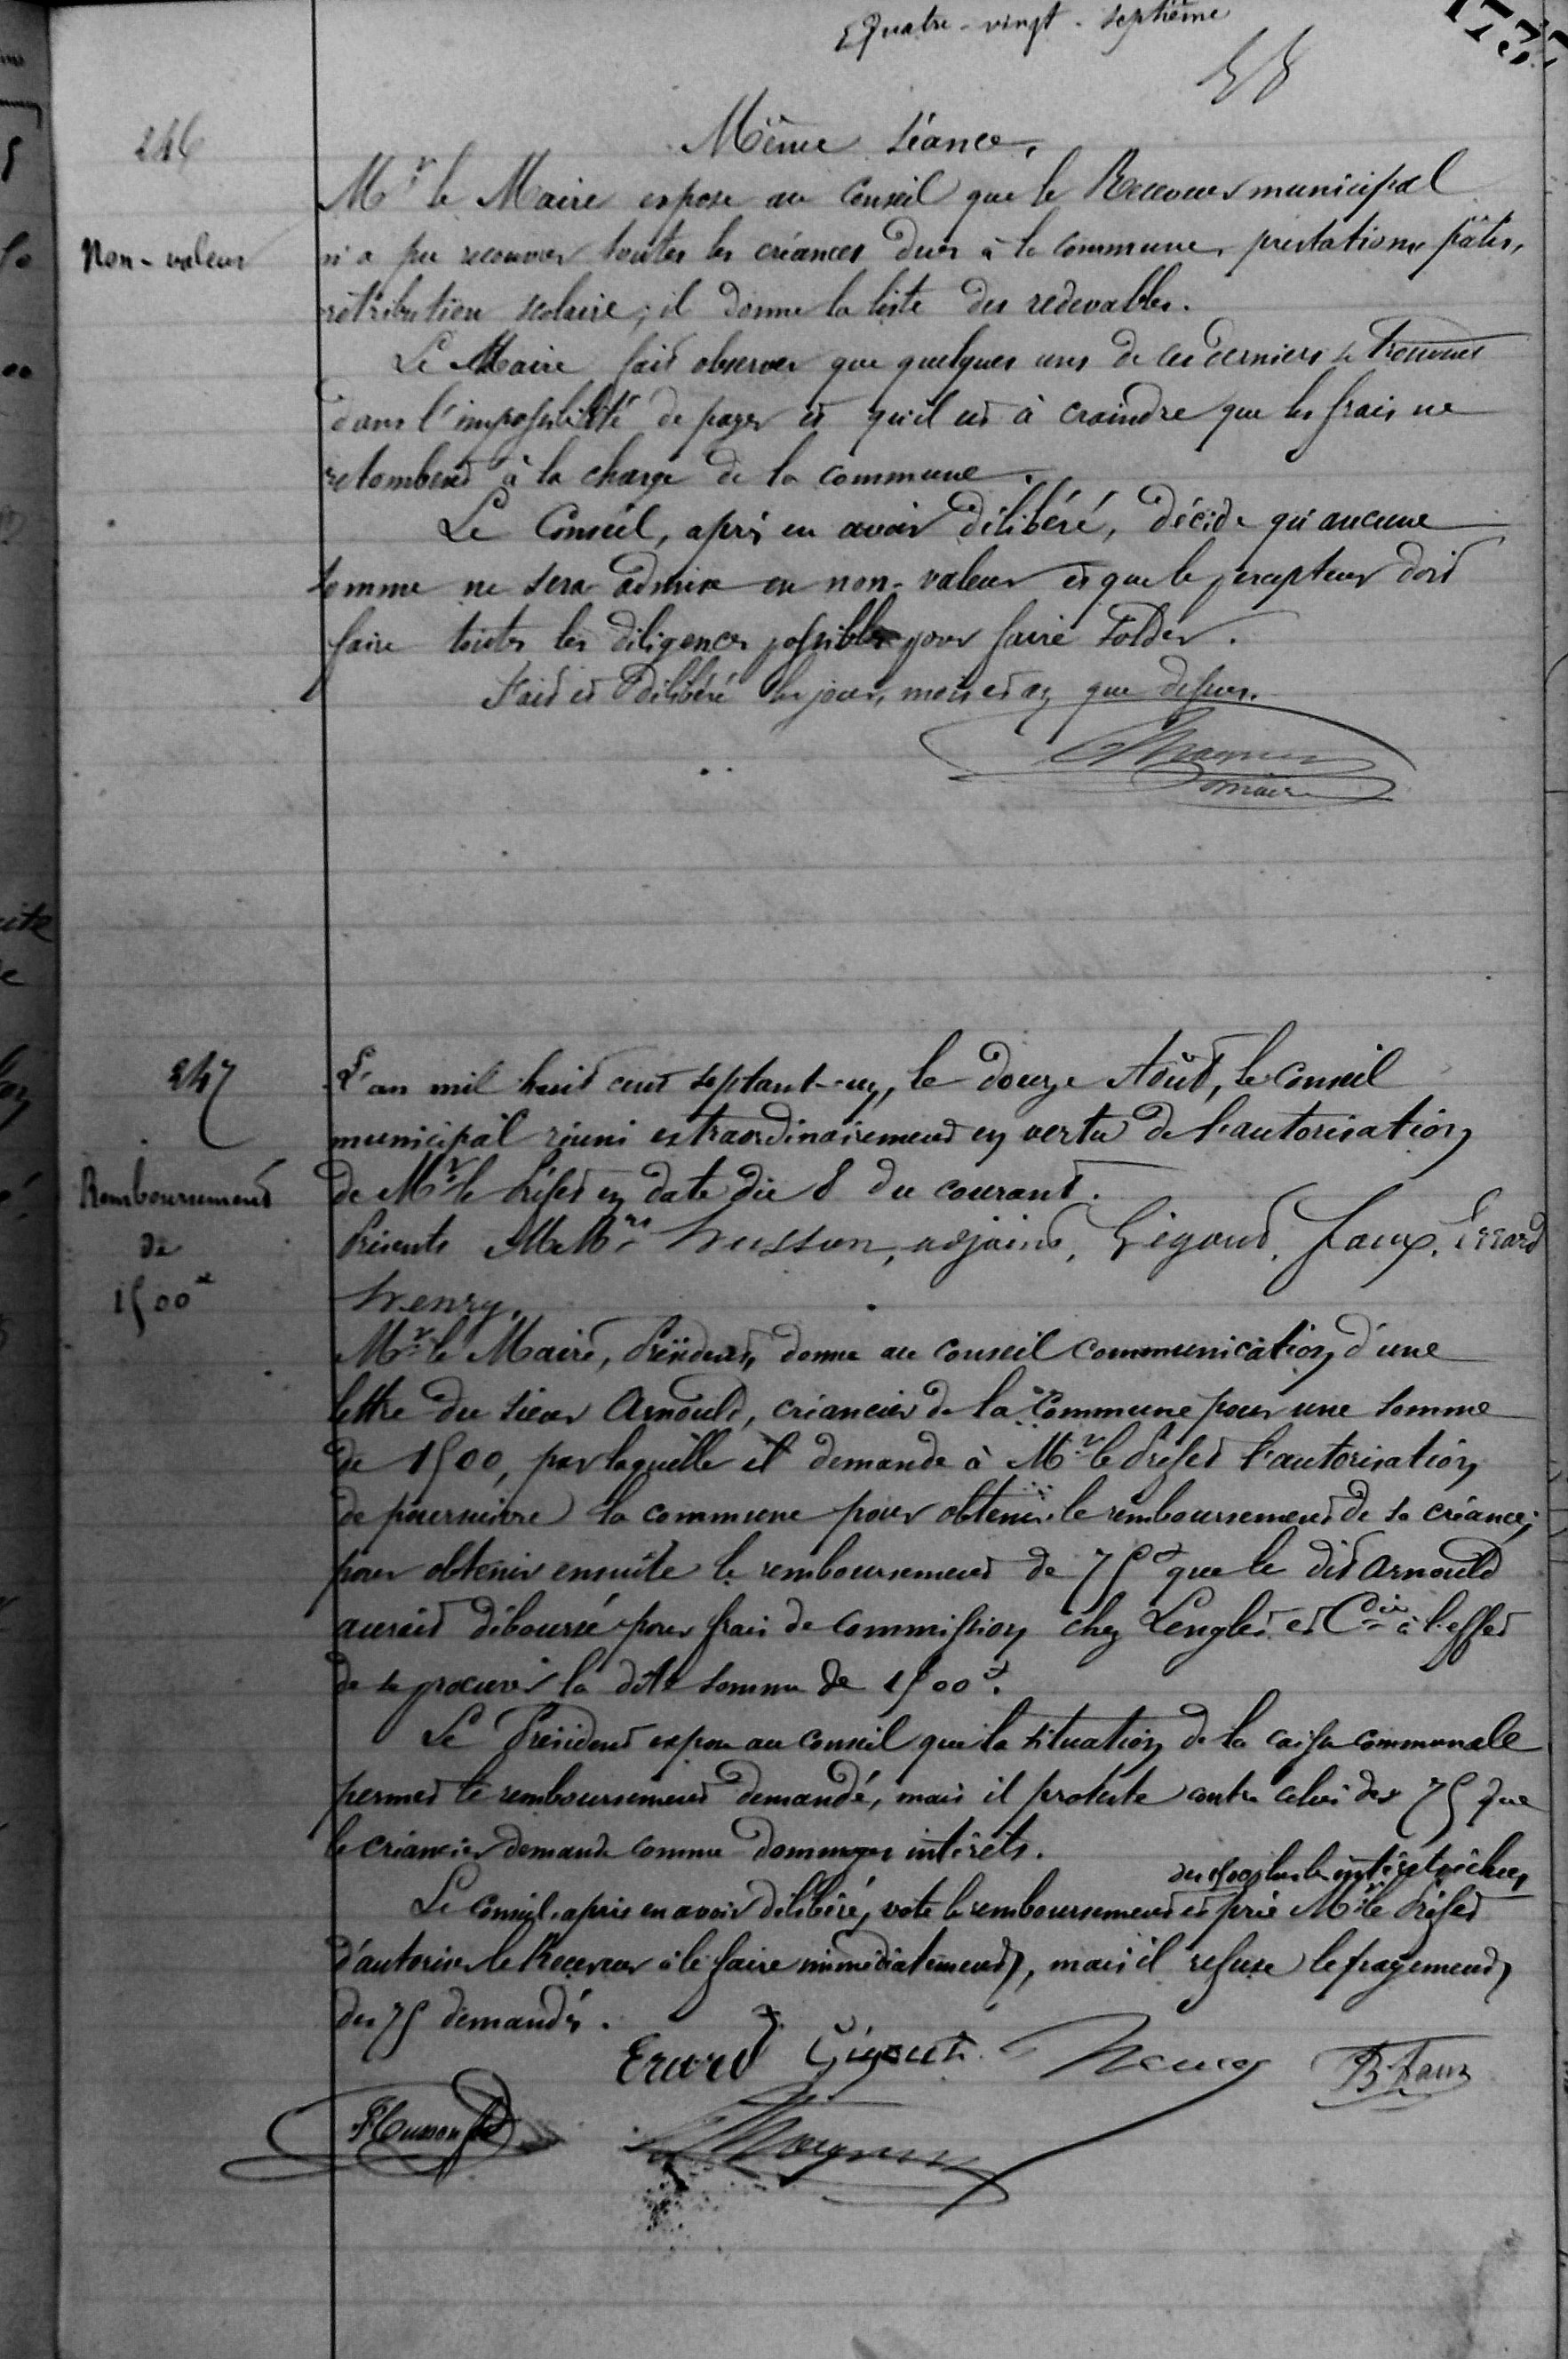 Quatre-vingt-septième
246
Même séance,
Mr le Maire expose au Conseil que le Receveur municipal
Non-valeur
n'a pu recouvrer toutes les créances dues à la commune, prestations, pâtis,
rétribution scolaire; il donne la liste des redevables.
Le Maire fait observer que quelques uns de ces derniers se trouvent
dans l'impossibilité de payer et qu'il est à craindre que les frais ne
retombent à la charge de la commune.
Le Conseil, après en avoir délibéré, décide qu'aucune
somme ne sera admise en non-valeur et que le percepteur doit
faire toutes les diligences possibles pour faire solder.
Fait et délibéré les jour, mois et an que dessus.
maire
247
L'an mil huit cent septante-un, le douze Août, le Conseil
municipal réuni extraordinairement en vertu de l'autorisation
de Mr le Préfet en date du 8 du courant.
Remboursement
de
1500
Présents MM.rs Husson, adjoint, Gigout, Faux, Errard
Henry.
Mr le Maire, Président, donne au conseil communication d'une
lettre du sieur Arnould, créancier de la Commune pour une somme
de 1500, par laquelle il demande à Mr le Préfet l'autorisation
de poursuivre la commune pour obtenir le remboursement de sa créance;
pour obtenir ensuite le remboursement de 75 que le dit Arnould
aurait déboursé pour frais de commission chez Lenglet et Cie à l'effet
de se procurer la dite somme de 1500.
Le Président expose au conseil que la situation de la caisse communale
permet le remboursement demandé, mais il proteste contre celui des 75 que
le créancier demande comme dommages intérêts.
des 1500 plus les intérêts échus
Le Conseil, après en avoir délibéré, vote le remboursement et prie Mr le Préfet
d'autoriser le Receveur à le faire immédiatement, mais il refuse le payement
des 75 demandés.
Erard Gigout Henry B. Faux
Husson